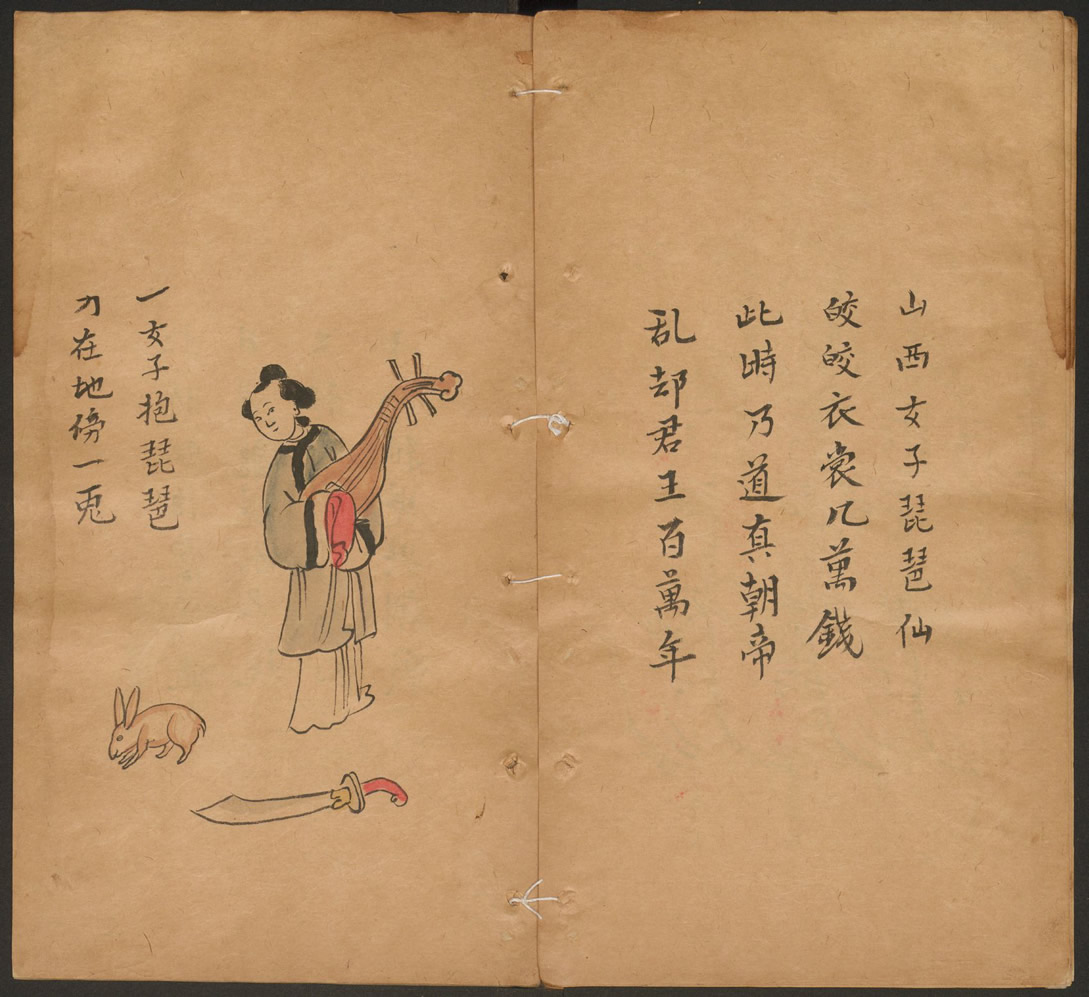 山西女子琵琶仙
皎皎衣裳几萬錢
此時乃道真朝帝
乱却君王百萬年
一女子抱琵琶
刀在地傍一兎